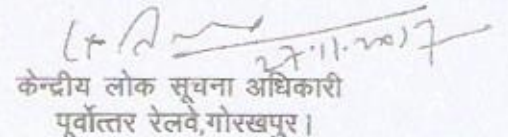 27.11.2017
केन्द्रीय लोक सूचना अधिकारी
पूर्वोत्तर रेलवे,गोरखपुर।